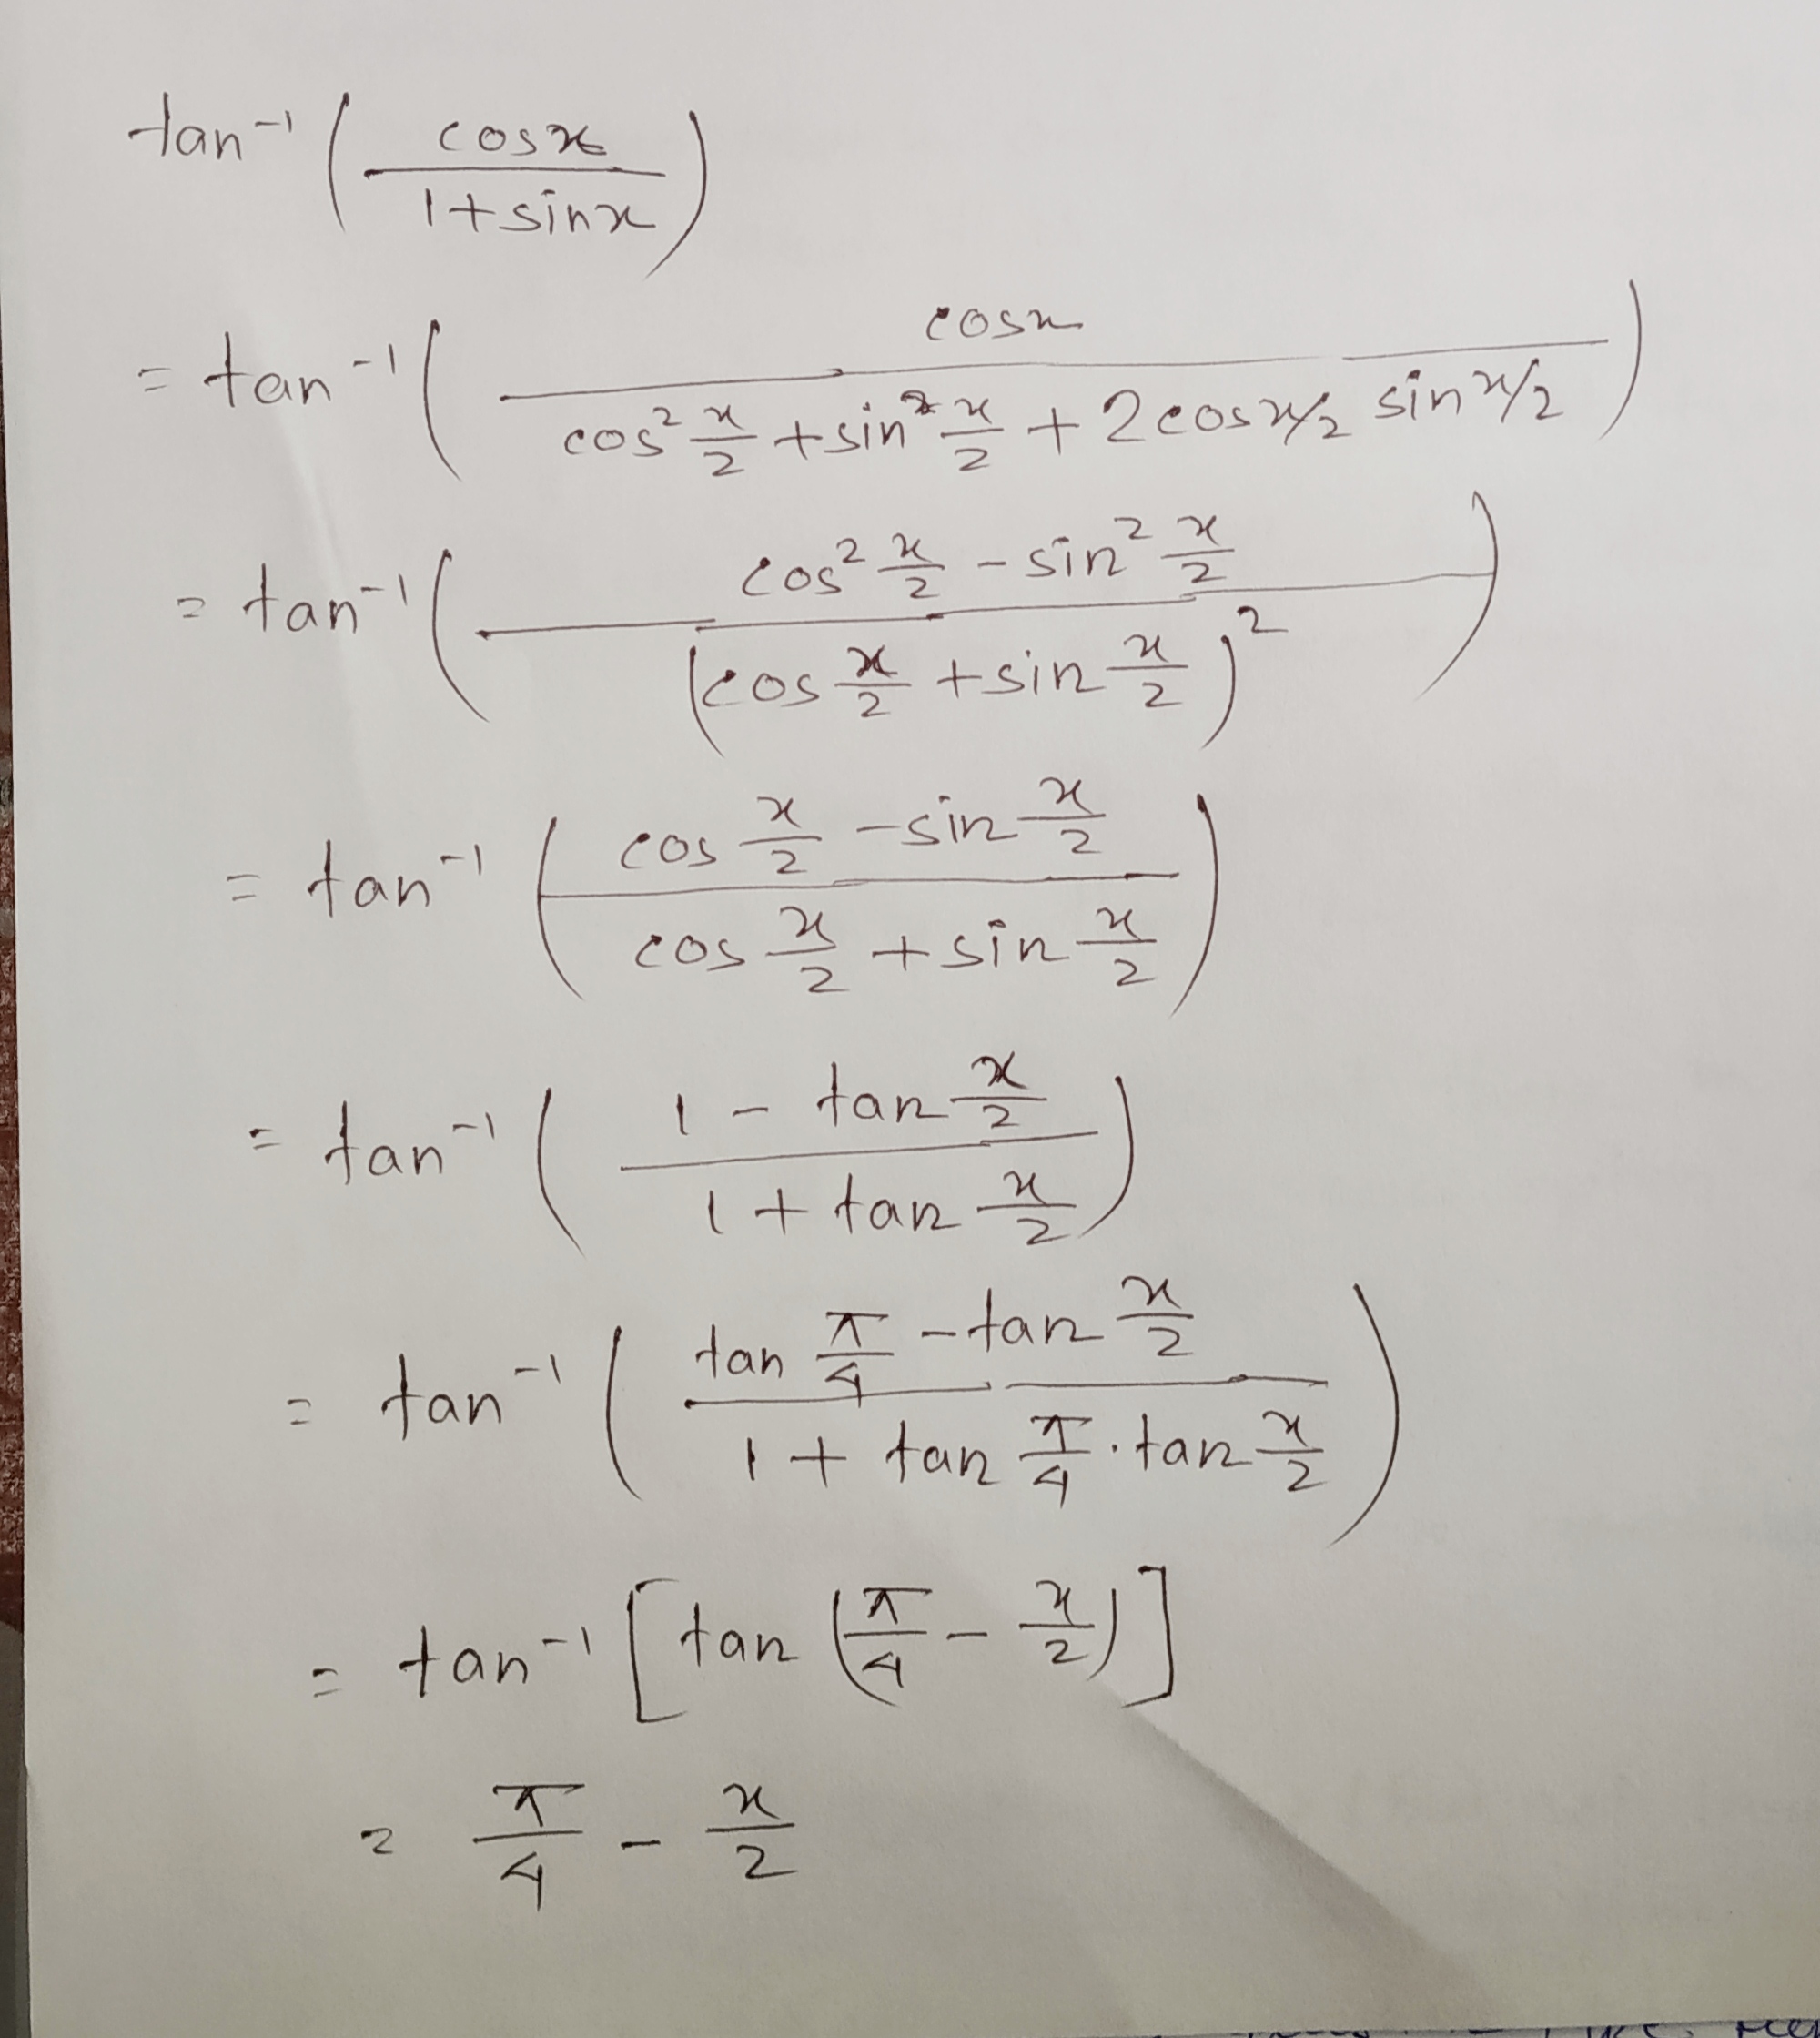 tan⁻¹ ( cosx / 1+sinx )
= tan⁻¹ ( cosx / cos² x/2 + sin² x/2 + 2cos x/2 sin x/2 )
= tan⁻¹ ( cos² x/2 - sin² x/2 / (cos x/2 + sin x/2)² )
= tan⁻¹ ( cos x/2 - sin x/2 / cos x/2 + sin x/2 )
= tan⁻¹ ( 1 - tan x/2 / 1 + tan x/2 )
= tan⁻¹ ( tan π/4 - tan x/2 / 1 + tan π/4 · tan x/2 )
= tan⁻¹ [ tan ( π/4 - x/2 ) ]
= π/4 - x/2